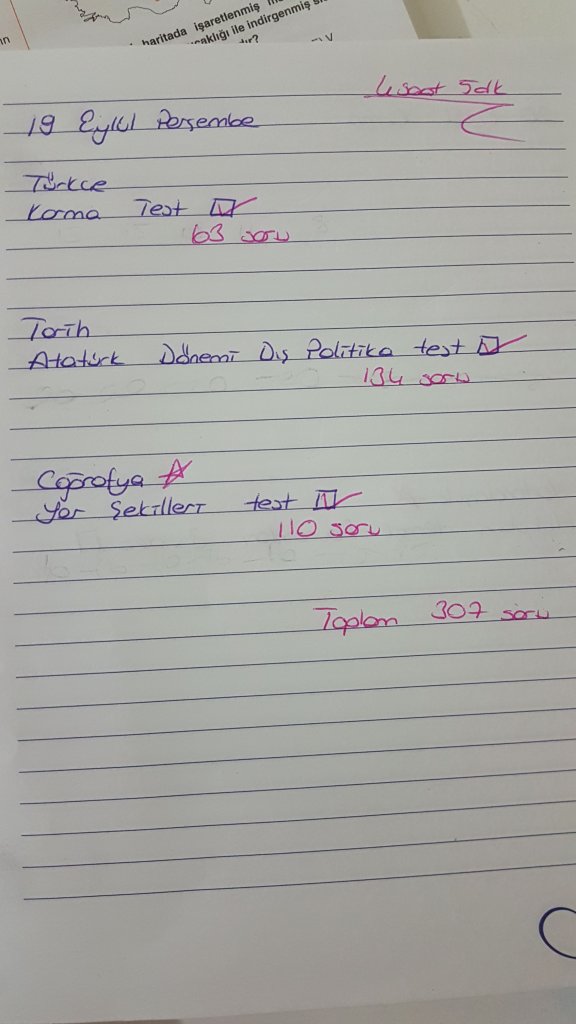 haritada işaretlenmiş
caklığı ile indirgenmiş
4 saat 5dk
19 Eylül Perşembe
Türkce
Karma Test
63 soru
Tarih
Atatürk Dönemi Dış Politika test
134 soru
Coğrafya
Yer Şekilleri test
110 soru
Toplam 307 soru